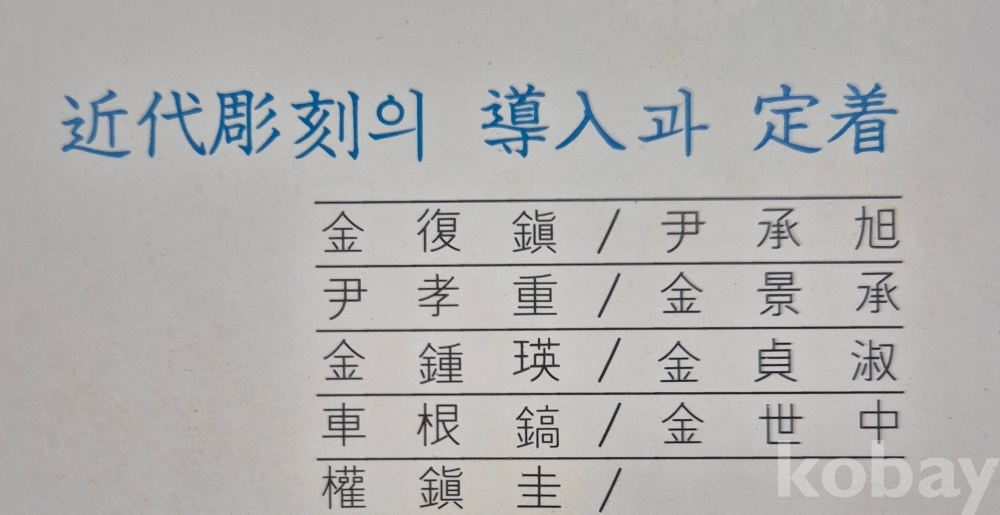 近代彫刻의 導入과 定着
金 復 鎭 / 尹 承 旭
尹 孝 重 / 金 景 承
金 鍾 瑛 / 金 貞 淑
車 根 鎬 / 金 世 中
權 鎭 圭 /
kobay